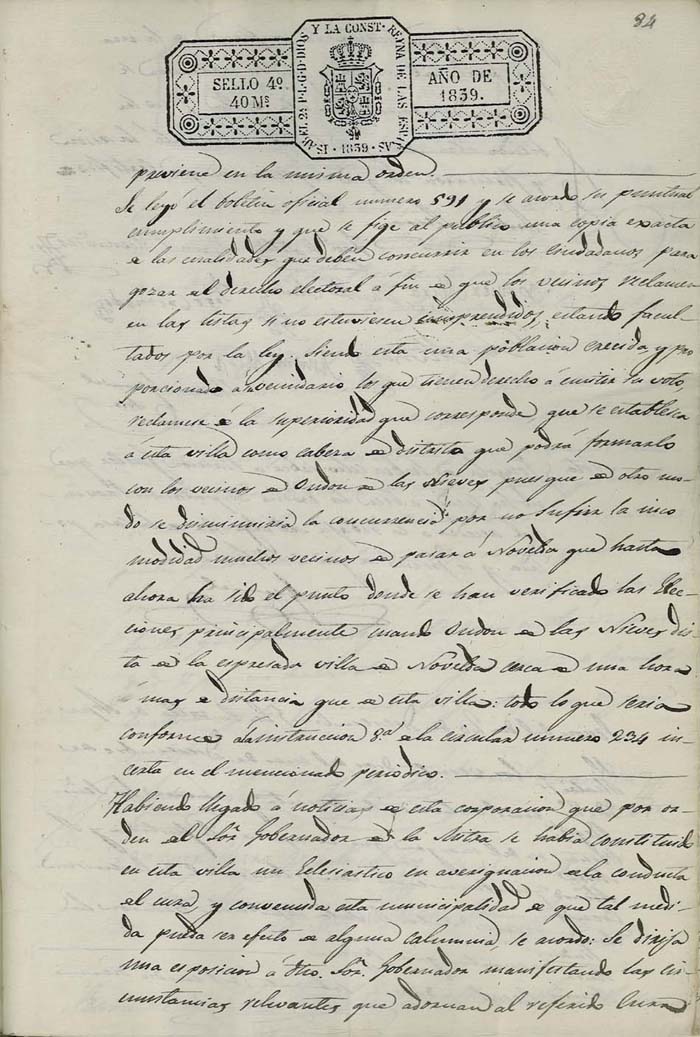 84
ISABEL 2ª P.L.G.D.DIOS Y LA CONST. REYNA DE LAS ESPAÑAS · 1839 ·
SELLO 4º
40 Mˢ
AÑO DE
1839.
previene en la misma orden.
Se leyo el boletin oficial numero 591 y se acordo su puntual
cumplimiento y que se fige al publico una copia exacta
de las cualidades que deben concurrir en los Ciudadanos para
gozar del derecho electoral á fin de que los vecinos reclamen
en las listas si no estuviesen comprendidos, estando facul-
tados por la ley. Siendo esta una poblacion crecida y pro
porcionado á su vecindario los que tienen derecho á emitir su voto,
reclamese de la superioridad que corresponde que se establesca
á esta villa como cabeza de distrito que podrá formarlo
con los vecinos de Ondon de las Nieves pues que de otro mo-
do se disminuiria la concurrencia por no sufrir la inco
modidad muchos vecinos de pasar á Novelda que hasta
ahora ha sido el punto donde se han verificado las Elec-
ciones principalmente cuando Ondon de las Nieves dis
ta de la espresada villa de Novelda cerca de una hora
mas de distancia que de esta villa: todo lo que seria
conforme á la instruccion 8.ª de la circular numero 234 in-
certa en el mencionado periodico.
Habiendo llegado á noticias de esta corporacion que por or-
den del Sōr. Gobernador de la Mitra se habia constituido
en esta villa un Eclesiastico en averiguacion de la conducta
del cura, y convencida esta municipalidad de que tal medi-
da pueda ser efecto de alguna calumnia, se acordo: Se dirija
una esposicion á dho. Sōr. Gobernador manifestando las cir
cunstancias relevantes que adornan al referido Cura